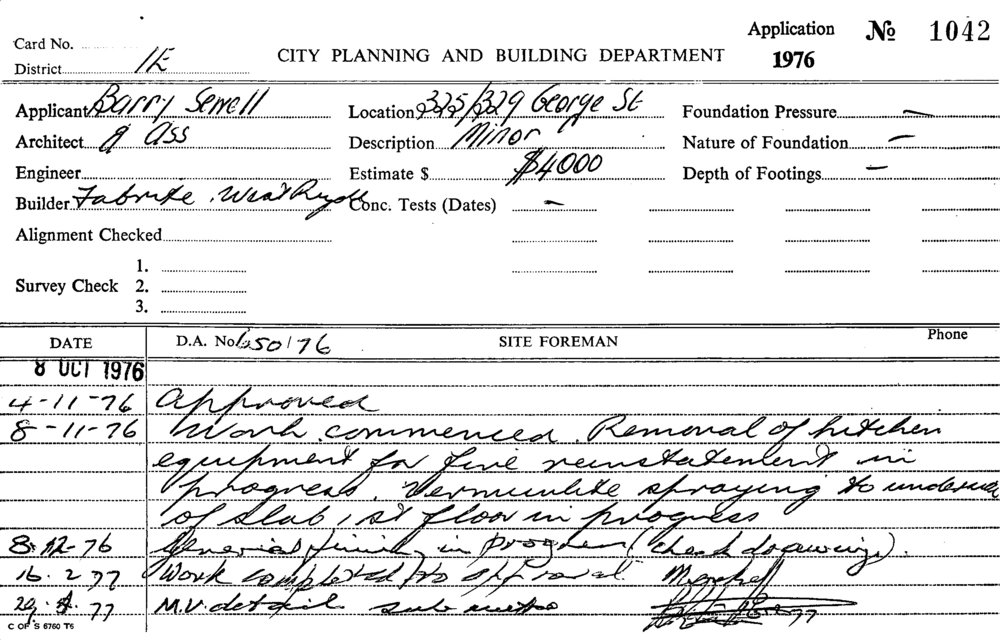 Card No.
District 1E
CITY PLANNING AND BUILDING DEPARTMENT
Application № 1042
1976
Applicant Barry Sewell
Location 325/329 George St
Foundation Pressure —
Architect & Ass
Description Minor
Nature of Foundation —
Engineer
Estimate $ $4000
Depth of Footings —
Builder Fabrite. West Ryde
Conc. Tests (Dates) —
Alignment Checked
Survey Check 1.
2.
3.
DATE D.A. No. 650/76 SITE FOREMAN Phone
8 OCT 1976
4-11-76 Approved
8-11-76 Work commenced. Removal of kitchen
equipment for fire reinstatement in
progress. Vermiculite spraying to underside
of slab 1st floor in progress
8-12-76 General finish in progress (check drawings).
16.2.77 Work completed to approval
29. 77 M.V. detail
C OF S 6760 T5